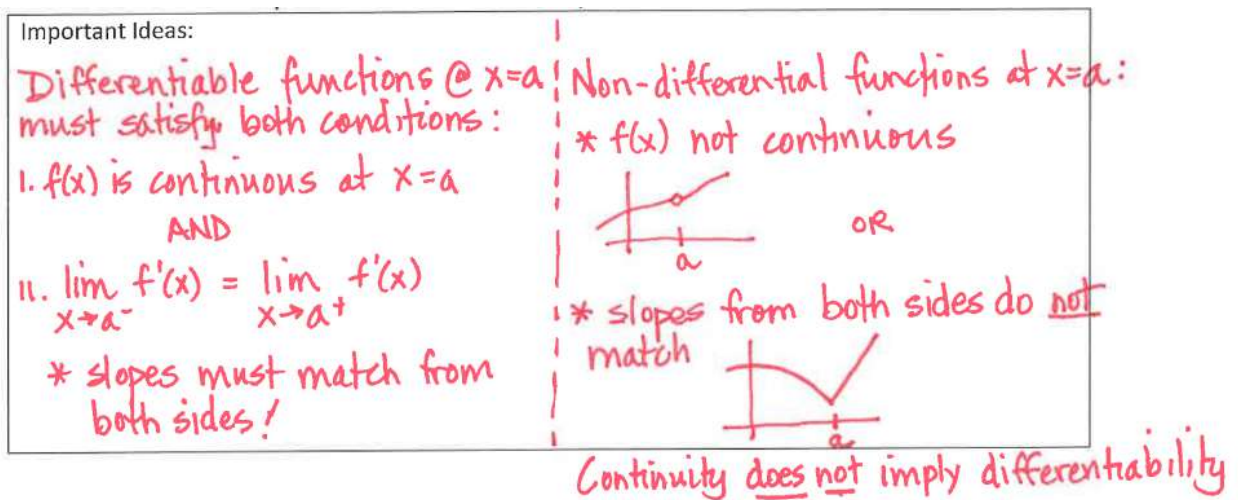 Important Ideas:
Differentiable functions @ x=a
must satisfy both conditions:
I. f(x) is continuous at x=a
AND
II. lim f'(x) = lim f'(x)
x→a⁻ x→a⁺
* slopes must match from
both sides!
Non-differential functions at x=a:
* f(x) not continuous
a
OR
* slopes from both sides do not
match
a
Continuity does not imply differentiability